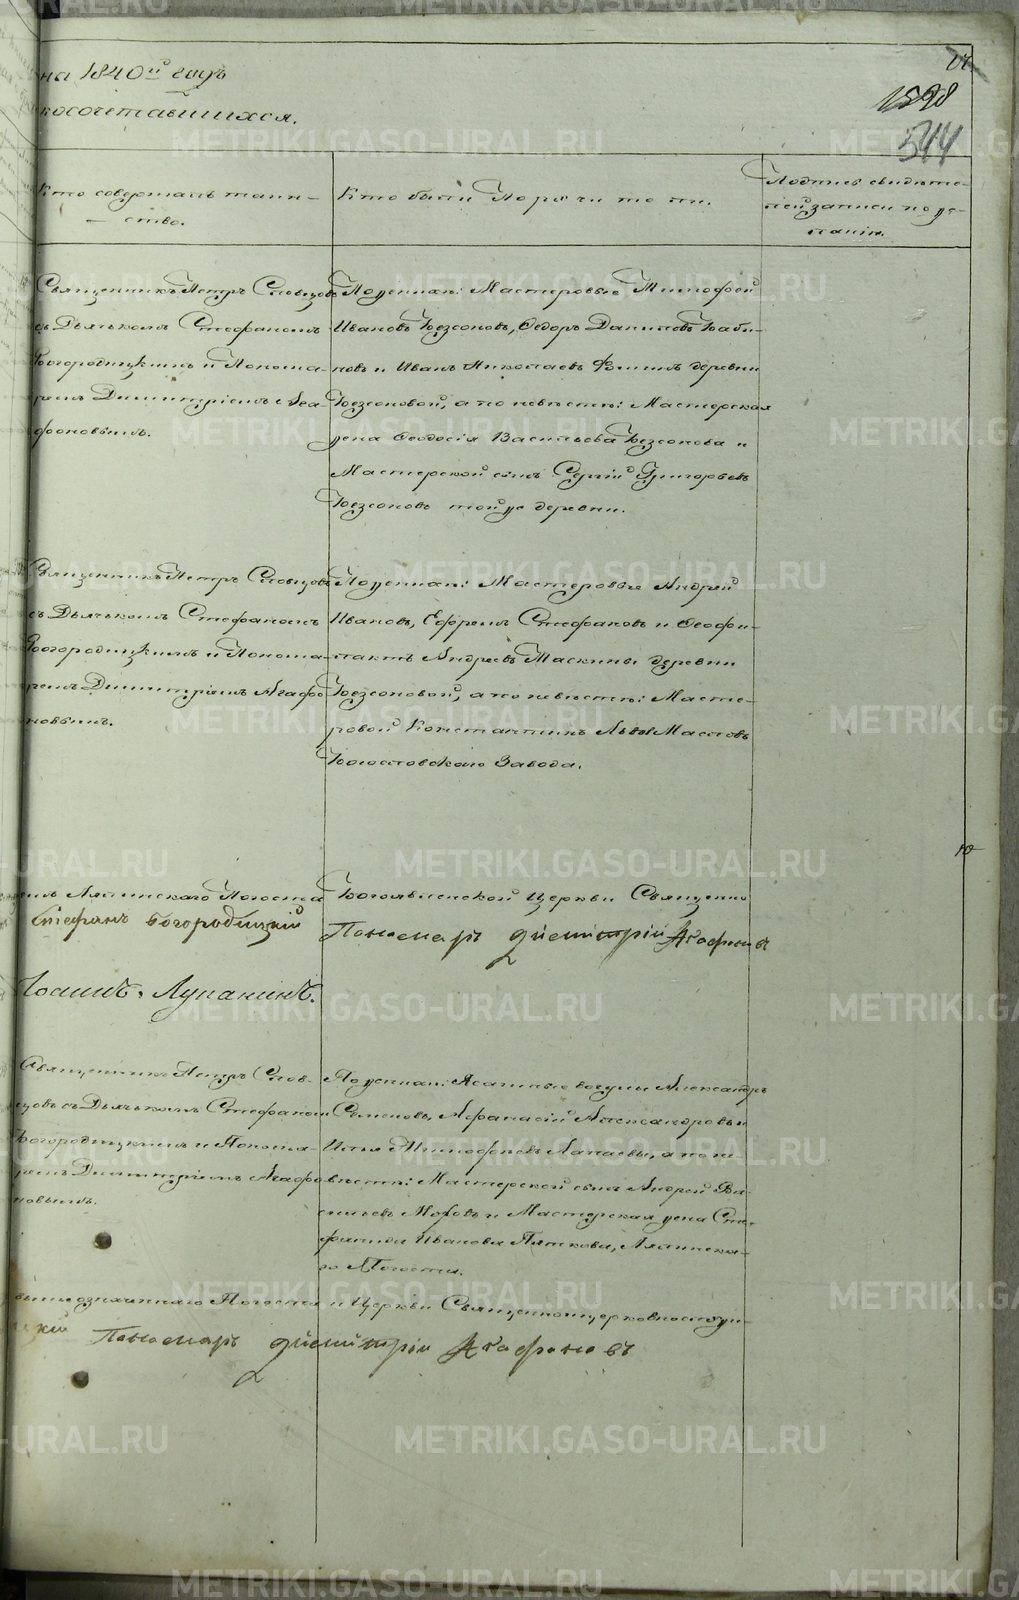 на 1840й годъ
косочетавшихся.
1598
544
Кто совершалъ таин-
ство.
Кто были Поручители.
Подпись свидѣте-
лей записи по же-
ланію.
Священникъ Петръ Словцовъ
съ Дьячкомъ Стефаномъ
Богородицкимъ и Понома-
ремъ Димитріемъ Ага-
фоновымъ.
По женихѣ: Мастеровые Тимофей
Ивановъ Безсоновъ, Ѳедоръ Даниловъ Баби-
новъ и Иванъ Николаевъ деревни
Безсоновой, а по невѣстѣ: Мастерская
жена Ѳеодосія Васильева Безсонова и
Мастерской сынъ Сергій Григорьевъ
Безсоновъ той же деревни.
Священникъ Петръ Словцовъ
съ Дьячкомъ Стефаномъ
Богородицкимъ и Понома-
ремъ Димитріемъ Агафо-
новымъ.
По женихѣ: Мастеровые Андрей
Ивановъ, Ефремъ Стефановъ и Ѳеофи-
лактъ Андреевъ Маскины деревни
Безсоновой, а по невѣстѣ: Масте-
ровой Константинъ Львовъ Масловъ
Богословскаго Завода.
Лялинскаго Погоста Богоявленской Церкви Священно
Стефанъ Богородицкій
Пономарь Димитрій Агафоновъ
Іоаннъ Лупанинъ.
Священникъ Петръ Слов-
цовъ съ Дьячкомъ Стефаномъ
Богородицкимъ и Понома-
ремъ Димитріемъ Агафо-
новымъ.
По женихѣ: Ясашные вогулы Александръ
Семеновъ, Афанасій Александровъ и
Илья Тимофеевъ Лапаевы, а по не-
вѣстѣ: Мастерской сынъ Андрей Ва-
сильевъ и Мастерская жена Сте-
фанида Иванова Пяткова, Лялинска-
го Погоста.
вышеозначеннаго Погоста и Церкви Священноцерковнослужи-
цкій Пономарь Димитрій Агафоновъ
METRIKI.GASO-URAL.RU